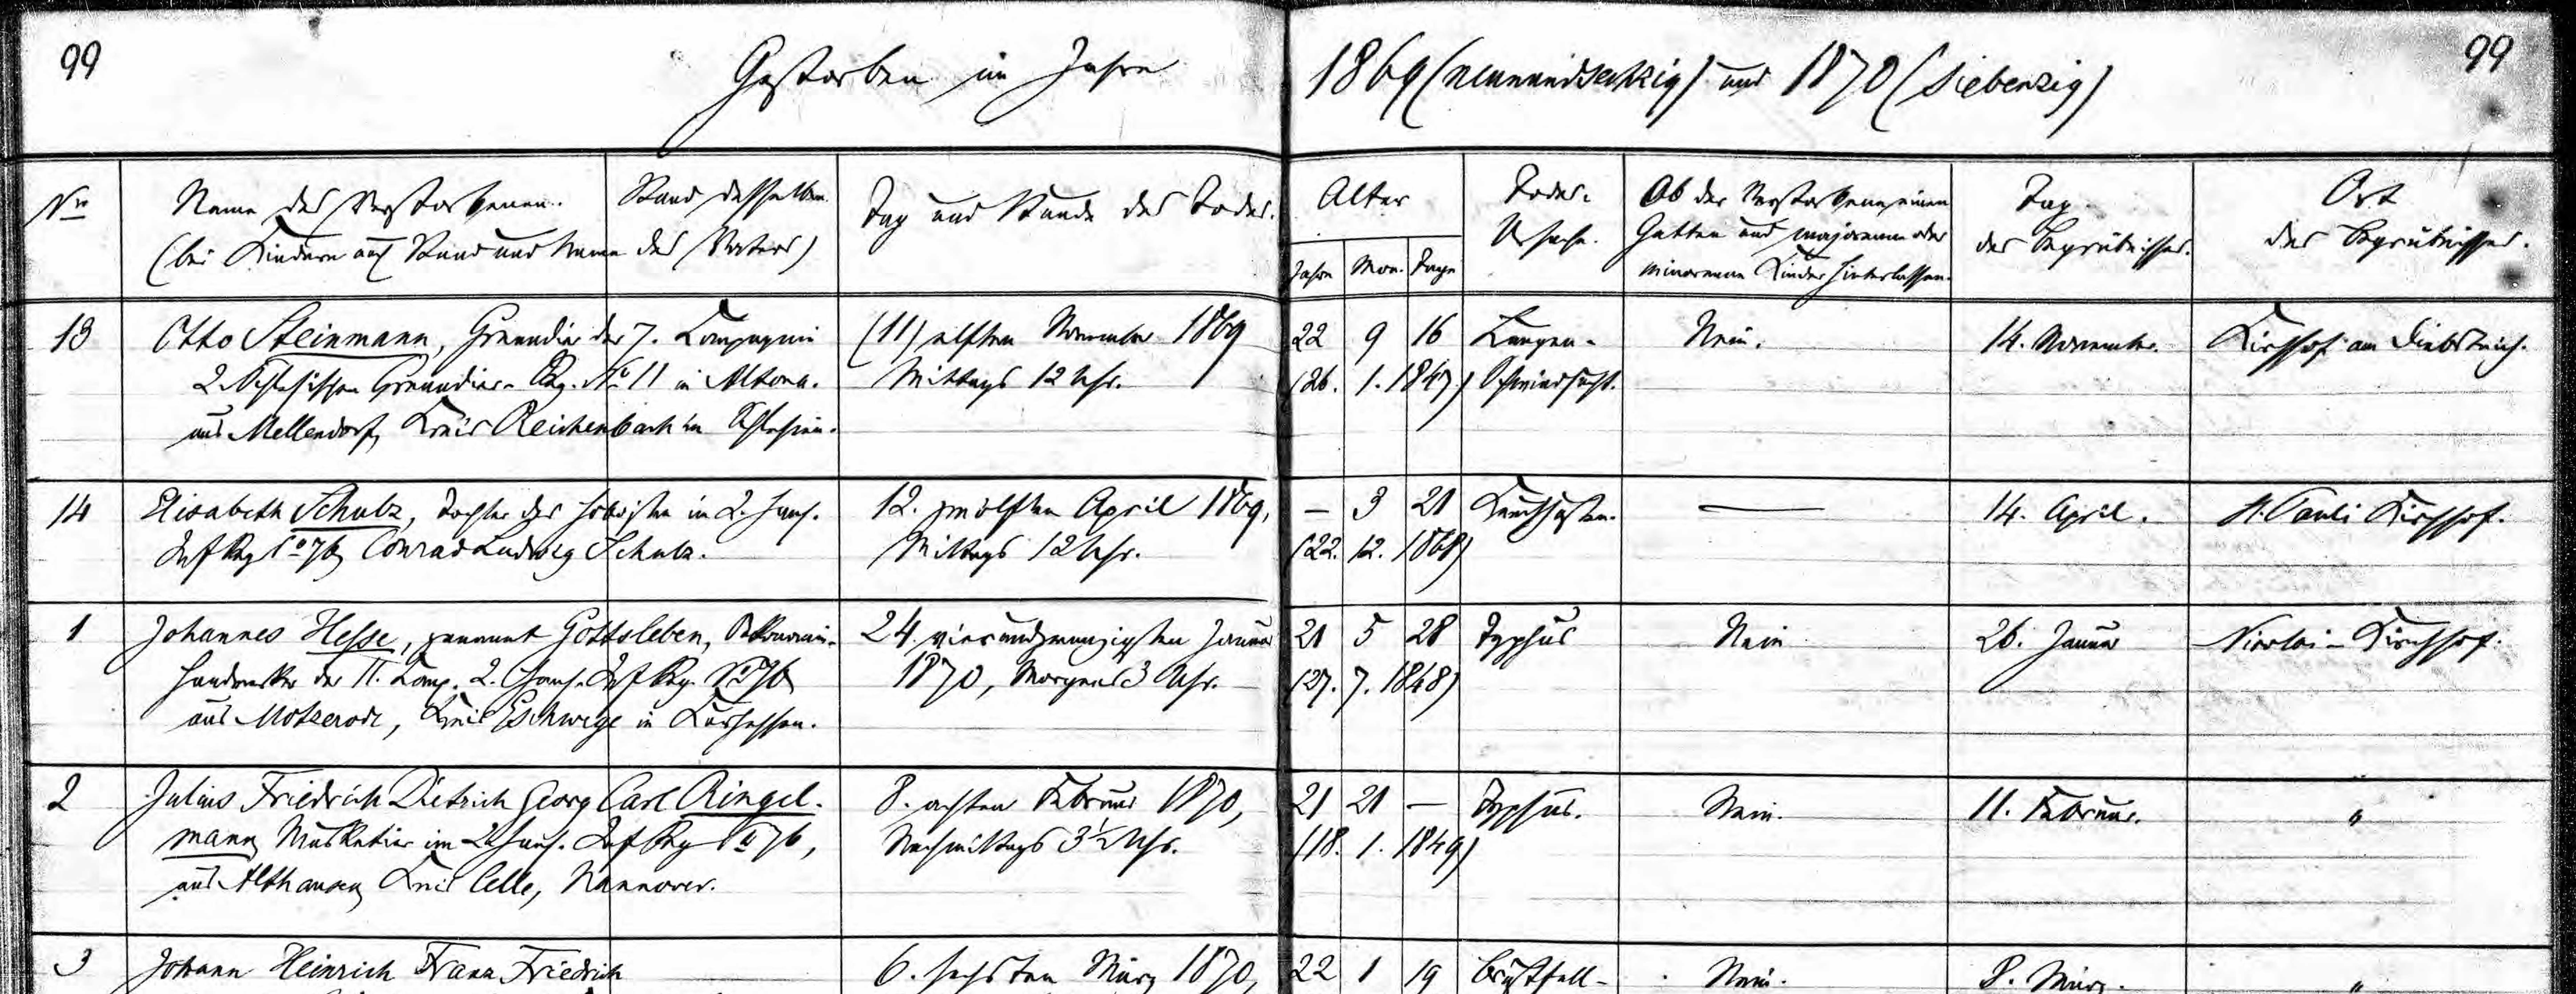 99
Gestorben im Jahre 1869 (neunundsechzig) und 1870 (siebenzig)
99
No
Name des Verstorbenen.
(bei Kindern auch Stand und Name
Stand desselben
des Vaters)
Tag und Stunde des Todes.
Alter
Jahre
Mon.
Tage
Todes-
Ursache.
Ob der Verstorbene einen
Gatten und majorenne oder
minorenne Kinder hinterlassen.
Tag
des Begräbnisses.
Ort
des Begräbnisses.
13
Otto Steinmann, Grenadier der 7. Compagnie
2. Schlesischen Grenadier-Reg. No 11 in Altona.
aus Mellendorf, Kreis Reichenbach in Schlesien.
(11) elften November 1869
Mittags 12 Uhr.
22 9 16
(26. 1. 1847)
Lungen-
Schwindsucht.
Nein.
14. November.
Kirchhof am Diebsteich.
14
Elisabeth Schulz, Tochter des Hoboisten im 2. Hans.
Inf Reg No 76 Conrad Ludwig Schulz.
12. zwölften April 1869,
Mittags 12 Uhr.
— 3 21
(22. 12. 1868)
Keuchhusten.
—
14. April.
St. Pauli Kirchhof.
1
Johannes Hesse, genannt Gottsleben, Oekonomie-
Handwerker der 11. Comp. 2. Hans. Inf Reg. No 76
aus Motzerode, Kreis Eschwege in Kurhessen.
24. vierundzwanzigsten Januar
1870, Morgens 3 Uhr.
21 5 28
(27. 7. 1848)
Typhus
Nein
26. Januar
Nicolai-Kirchhof.
2
Julius Friedrich Dietrich Georg Carl Ringel-
mann Musketier im 2 Hans. Inf Reg No 76,
aus Althausen Kreis Celle, Hannover.
8. achten Februar 1870,
Nachmittags 3½ Uhr.
21 21 —
(18. 1. 1849)
Typhus.
Nein.
11. Februar.
"
3
Johann Heinrich Franz Friedrich
6. sechsten März 1870,
22 1 19
Brustfell-
Nein.
8. März.
"